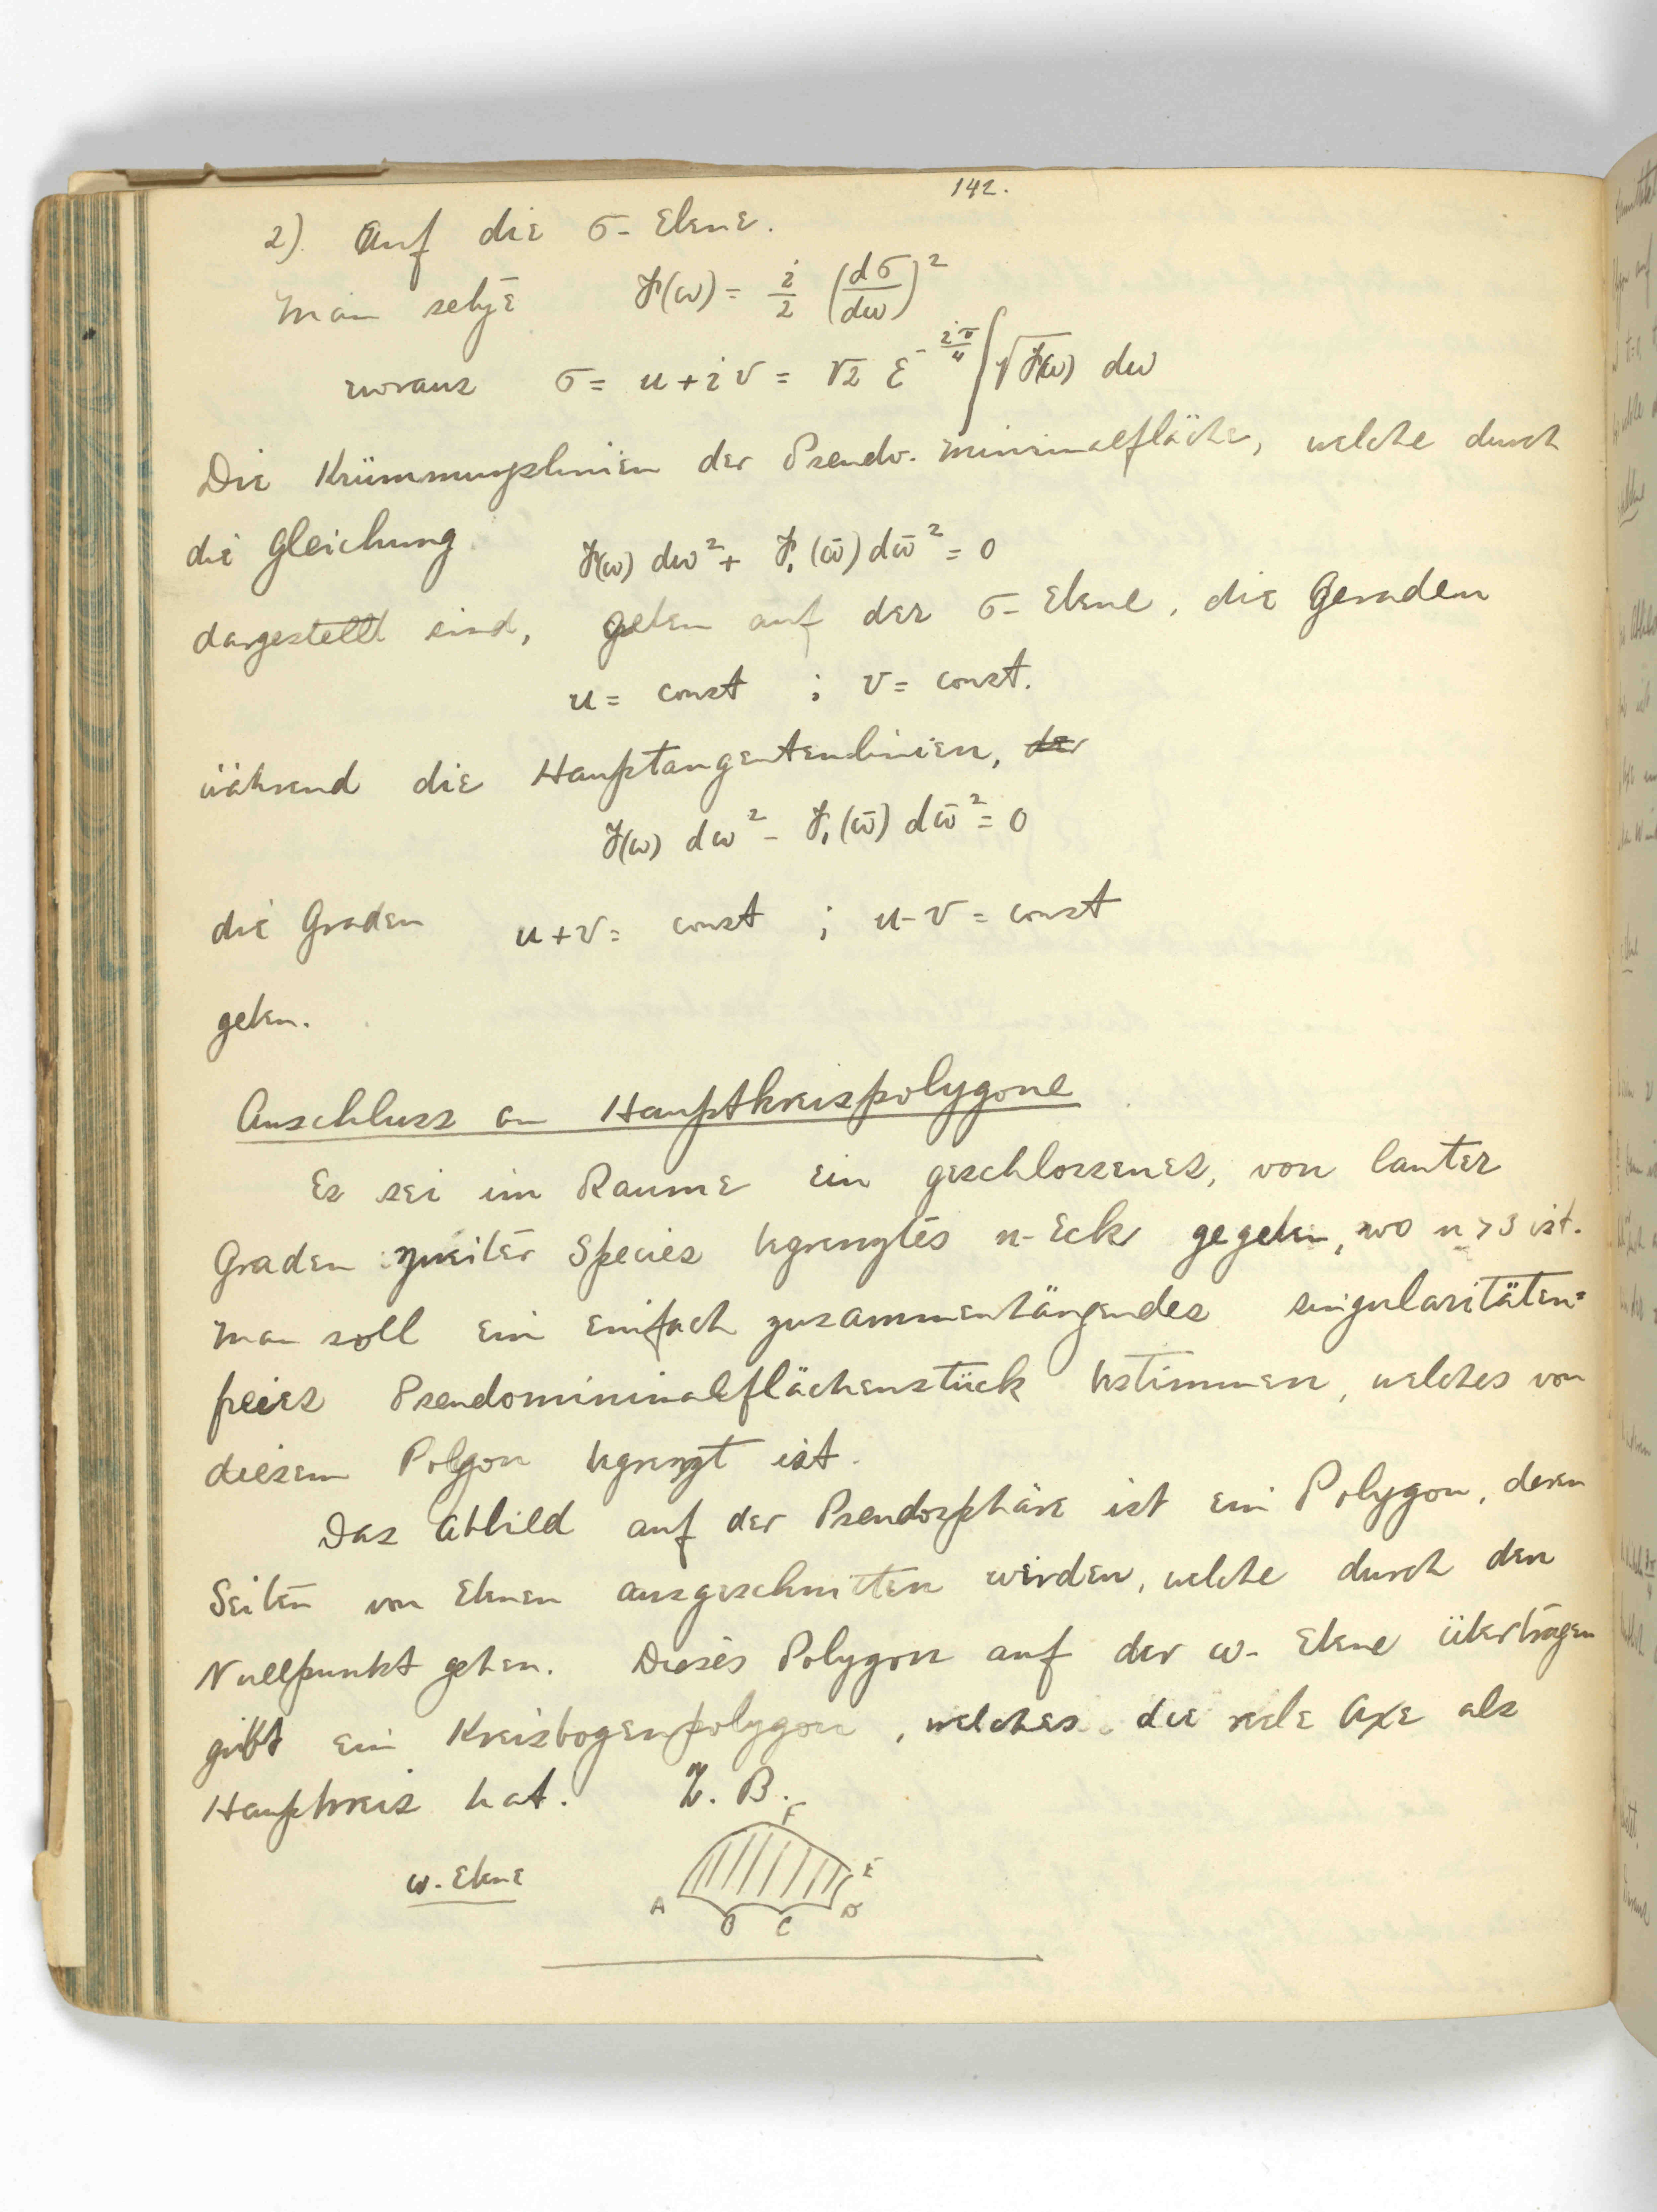 142.
2) Auf die σ-Ebene.
Man setze F(ω) = i/2 (dσ/dω)²
woraus σ = u + iv = √2 e^{-iπ/4} ∫ √F(ω) dω
Die Krümmungslinien der Pseudo-minimalfläche, welche durch
die Gleichung
F(ω) dω² + F₁(ω̄) dω̄² = 0
dargestellt sind, geben auf der σ-Ebene, die Geraden
u = const ; v = const.
während die Haupttangentenlinien, der
F(ω) dω² - F₁(ω̄) dω̄² = 0
die Graden u+v = const ; u-v = const
geben.
Anschluss an Hauptkreispolygone
Es sei im Raume ein geschlossenes, von lauter
Graden zweiter Species begrenztes n-Eck gegeben, wo n>3 ist.
Man soll ein einfach zusammenhängendes singularitäten=
freies Pseudominimalflächenstück bestimmen, welches von
diesem Polgon begrenzt ist.
Das Abbild auf der Pseudosphäre ist ein Polygon, deren
Seiten von Ebenen ausgeschnitten werden, welche durch den
Nullpunkt gehen. Dieses Polygon auf der ω-Ebene übertragen
gibt ein Kreisbogenpolygon, welches die reele Axe als
Hauptkreis hat. Z. B.
F
ω-Ebene
E
A
B C D